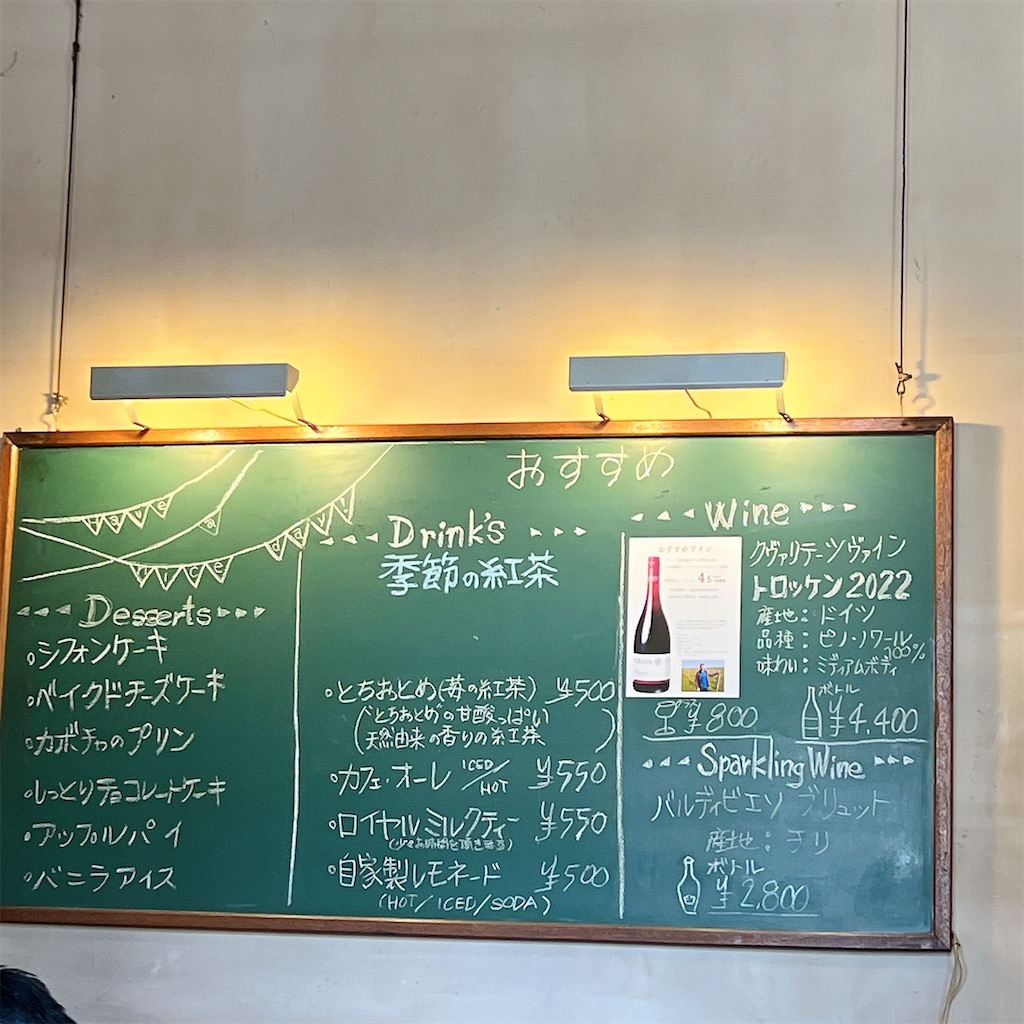 おすすめ
Have a
nice day!
Desserts
・シフォンケーキ
・ベイクドチーズケーキ
・カボチャのプリン
・しっとりチョコレートケーキ
・アップルパイ
・バニラアイス
Drink's
季節の紅茶
・とちおとめ(苺の紅茶) ¥500
(“とちおとめ”の甘酸っぱい
天然由来の香りの紅茶)
・カフェ・オーレ ICED/HOT ¥550
・ロイヤルミルクティー ¥550
(少々お時間を頂きます)
・自家製レモネード ¥500
(HOT/ICED/SODA)
Wine
おすすめワイン
クヴァリテーツヴァイン
トロッケン2022
産地:ドイツ
品種:ピノ・ノワール100%
味わい:ミディアムボディ
グラス ¥800
ボトル ¥4,400
Sparkling Wine
バルディビエソ ブリュット
産地:チリ
ボトル
¥2,800